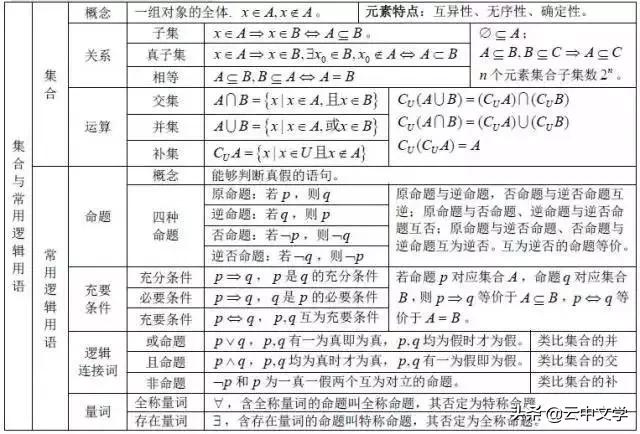 集合与常用逻辑用语
集合
概念
一组对象的全体. x∈A, x∉A。
元素特点：互异性、无序性、确定性。
关系
子集
x∈A⇒x∈B⇔A⊆B。
真子集
x∈A⇒x∈B, ∃x₀∈B, x₀∉A⇔A⊂B
相等
A⊆B, B⊆A⇔A=B
∅⊆A；
A⊆B, B⊆C⇒A⊆C
n个元素集合子集数2ⁿ。
运算
交集
A∩B={x|x∈A,且x∈B}
并集
A∪B={x|x∈A,或x∈B}
补集
C_U A={x|x∈U且x∉A}
C_U(A∪B)=(C_U A)∩(C_U B)
C_U(A∩B)=(C_U A)∪(C_U B)
C_U(C_U A)=A
常用逻辑用语
命题
概念
能够判断真假的语句。
四种
命题
原命题：若p，则q
逆命题：若q，则p
否命题：若¬p，则¬q
逆否命题：若¬q，则¬p
原命题与逆命题，否命题与逆否命题互
逆；原命题与否命题、逆命题与逆否命
题互否；原命题与逆否命题、否命题与
逆命题互为逆否。互为逆否的命题等价。
充要
条件
充分条件
p⇒q，p是q的充分条件
必要条件
p⇒q，q是p的必要条件
充要条件
p⇔q，p,q互为充要条件
若命题p对应集合A，命题q对应集合
B，则p⇒q等价于A⊆B，p⇔q等
价于A=B。
逻辑
连接词
或命题
p∨q，p,q有一为真即为真，p,q均为假时才为假。
类比集合的并
且命题
p∧q，p,q均为真时才为真，p,q有一为假即为假。
类比集合的交
非命题
¬p和p为一真一假两个互为对立的命题。
类比集合的补
量词
全称量词
∀，含全称量词的命题叫全称命题，其否定为特称命题。
存在量词
∃，含存在量词的命题叫特称命题，其否定为全称命题。
头条@云中文学